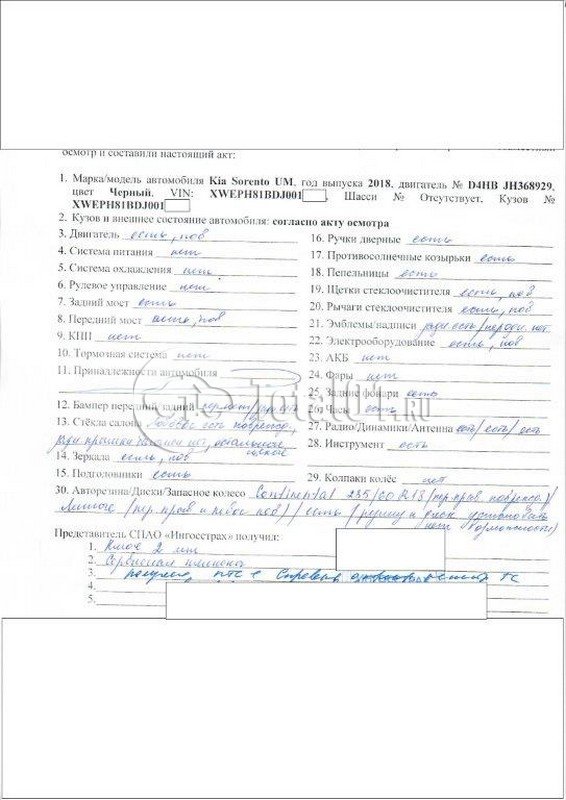 осмотр и составили настоящий акт:
1. Марка/модель автомобиля Kia Sorento UM, год выпуска 2018, двигатель № D4HB JH368929,
цвет Черный. VIN: XWEPH81BDJ001 , Шасси № Отсутствует. Кузов №
XWEPH81BDJ001
2. Кузов и внешнее состояние автомобиля: согласно акту осмотра
3. Двигатель есть, пов
4. Система питания нет
5. Система охлаждения нет
6. Рулевое управление нет
7. Задний мост есть
8. Передний мост есть, пов
9. КПП нет
10. Тормозная система нет
11. Принадлежности автомобиля
12. Бампер передний задний
13. Стёкла салона лобовое есть поврежд,
задн крышки багажн нет, остальное
14. Зеркала есть, пов
15. Подголовники есть
16. Ручки дверные есть
17. Противосолнечные козырьки есть
18. Пепельницы есть
19. Щетки стеклоочистителя есть, пов
20. Рычаги стеклоочистителя есть, пов
21. Эмблемы/надписи задн есть/передн нет
22. Электрооборудование есть, пов
23. АКБ нет
24. Фары нет
25. Задние фонари есть
26. Часы есть
27. Радио/Динамики/Антенна есть/есть/есть
28. Инструмент есть
29. Колпаки колёс нет
30. Авторезина/Диски/Запасное колесо Continental 235/60 R18/пер.прав поврежд/
Литые /пер.прав и левое пов/ есть
Представитель СПАО «Ингосстрах» получил:
1. Ключ 2 шт
2. Сервисная книжка
3. ПТС с
4.
5.
TOTAL01.RU